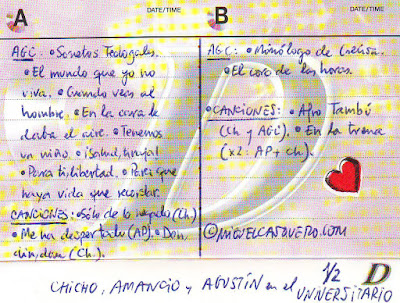 A
DATE/TIME
AGC: • Sonetos Teologales.
• El mundo que yo no
viva. • Cuando veas al
hombre. • En la cara le
daba el aire. • Tenemos
un niño. • ¡Salud, bruja!
• Para tu libertad. • Para que
haya vida que recordar.
CANCIONES: • Sólo de lo negado (Ch.)
• Me ha despertado (AP). • Don,
din, dan (Ch.).
B
DATE/TIME
AGC: • Monólogo de
• El coro de las horas.
• CANCIONES: • Afro Tambú
(Ch y AGC). • En la trena
(x2: AP + Ch.).
©MIGUELCASQUERO.COM
CHICHO, AMANCIO y AGUSTÍN en el 1/2 D
UNIVERSITARIO